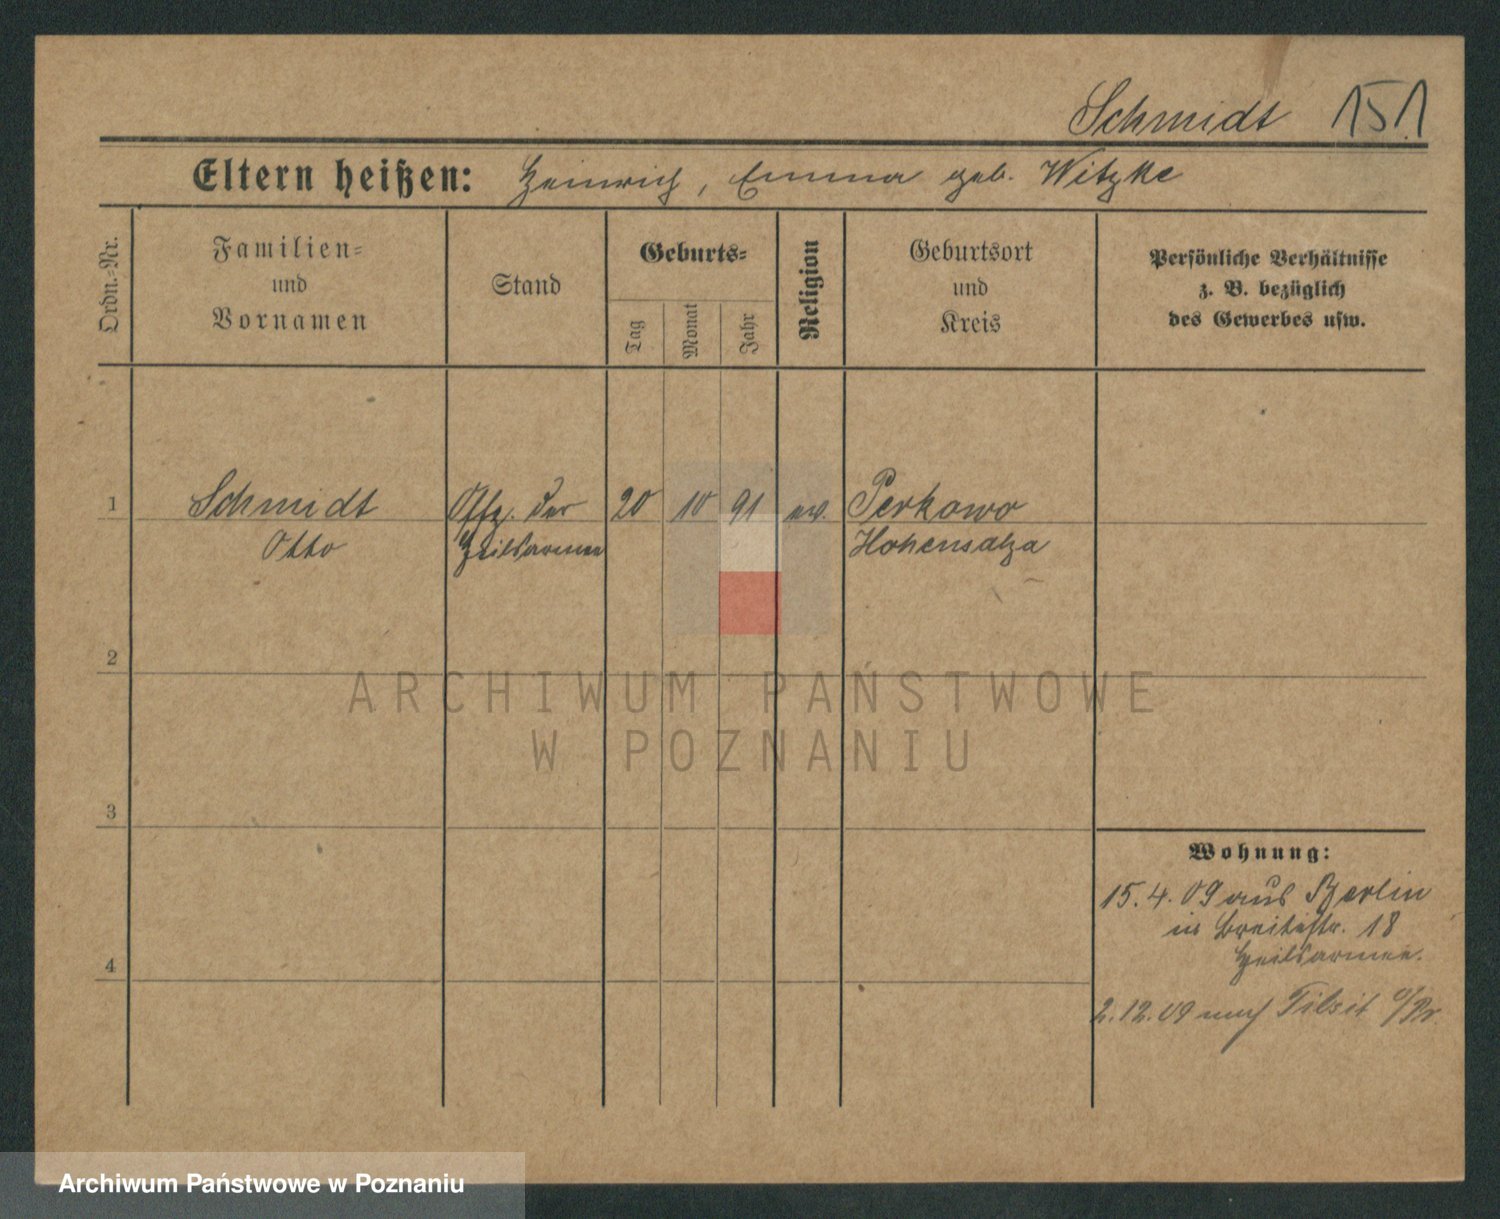 Schmidt 151
Eltern heißen: Heinrich, Emma geb. Witzke
Ordn.-Nr.
Familien-
und
Vornamen
Stand
Geburts-
Tag
Monat
Jahr
Religion
Geburtsort
und
Kreis
Persönliche Verhältnisse
z. B. bezüglich
des Gewerbes usw.
1 Schmidt Offz. der 20 10 91 ev. Perkowo
Otto Heilsarmee Hohensalza
2
ARCHIWUM PAŃSTWOWE
W POZNANIU
3
Wohnung:
15.4.09 aus Berlin
in Breitestr. 18
Heilsarmee.
4
2.12.09 nach Tilsit o/Pr.
Archiwum Państwowe w Poznaniu